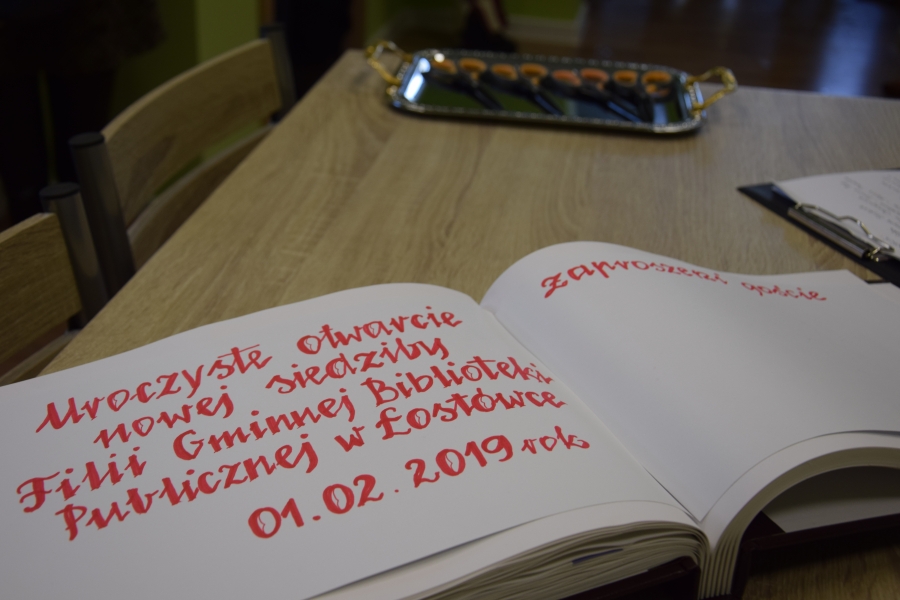 Uroczyste otwarcie
nowej siedziby
Filii Gminnej Biblioteki
Publicznej w Łostówce
01.02.2019 rok
zaproszeni goście